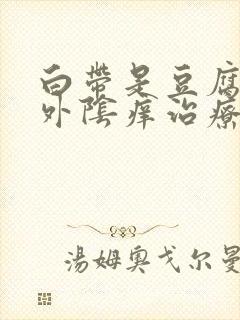 白帶是豆腐
外陰痒治療
湯姆奧戈尔曼